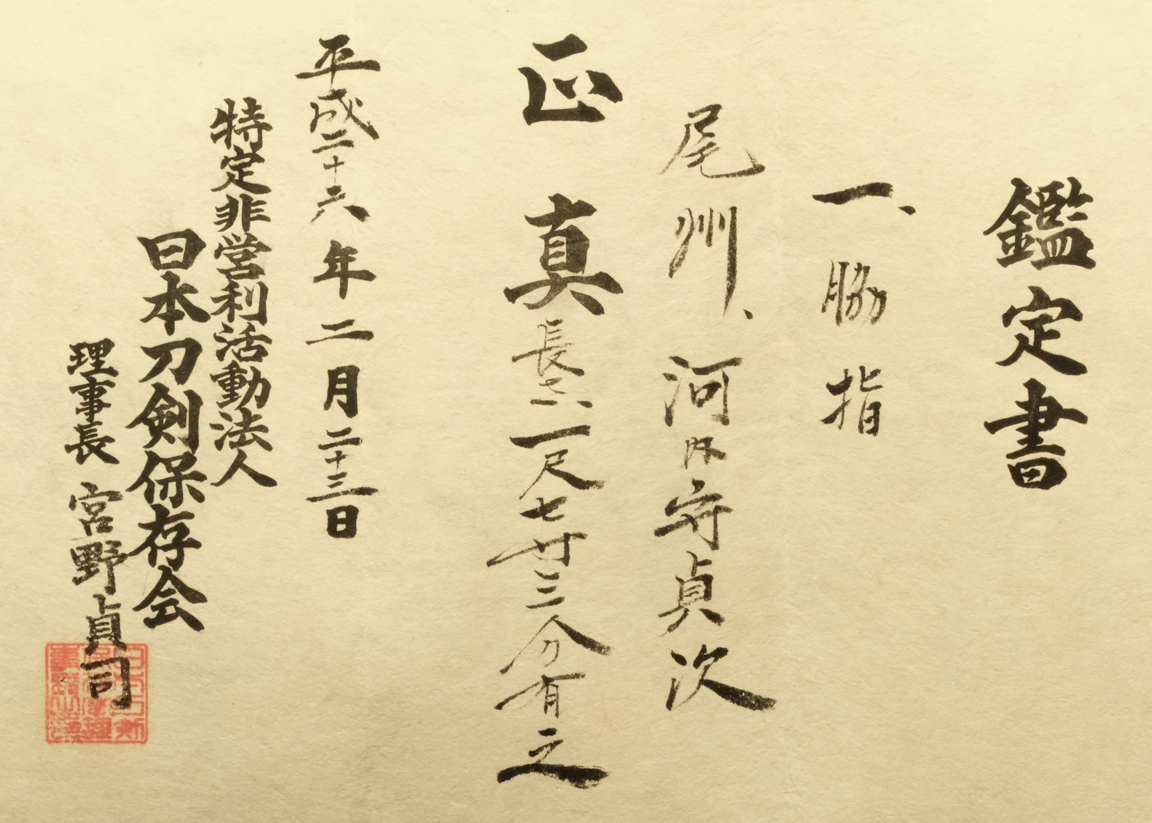 鑑定書
一、脇指
尾州、河内守貞次
正真長さ一尺七寸三分有之
平成二十六年二月二十三日
特定非営利活動法人
日本刀剣保存会
理事長 宮野貞司